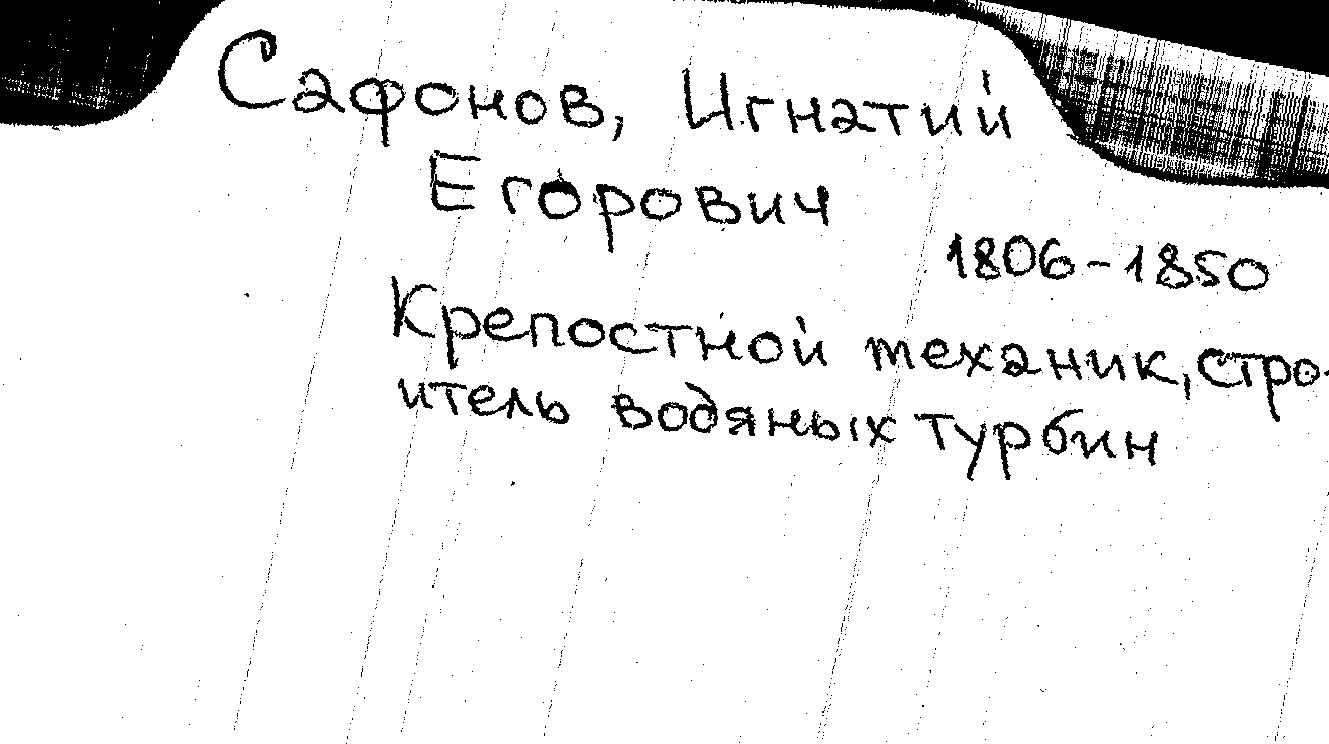 Сафонов, Игнатий
Егорович
1806-1850
Крепостной механик, стро-
итель водяных турбин